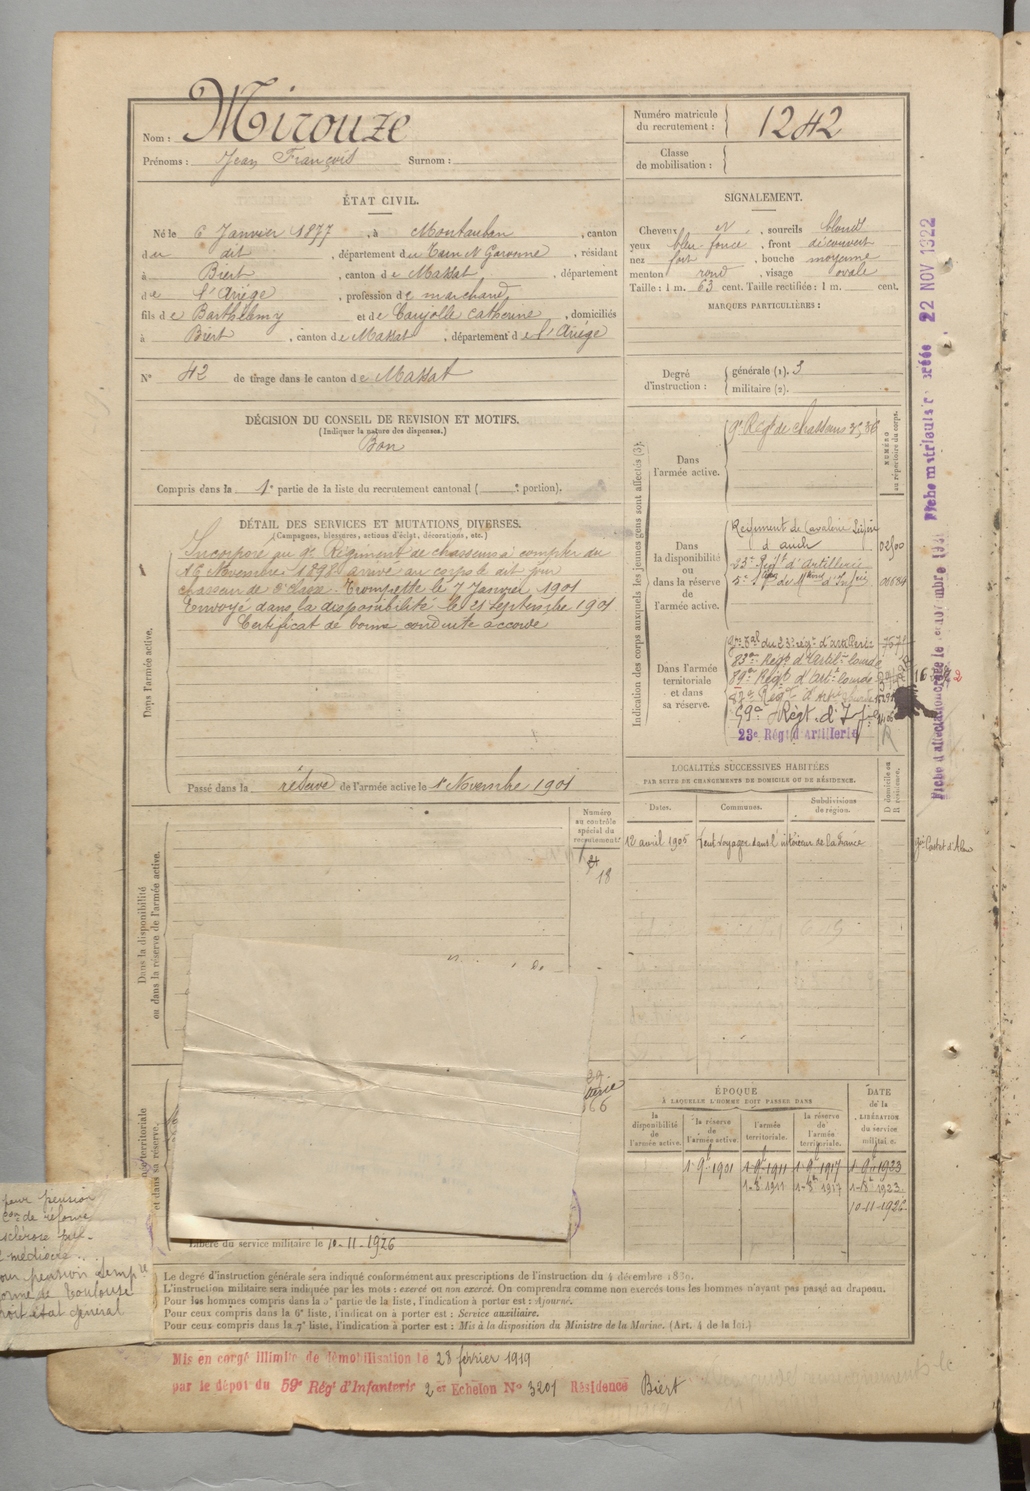 Nom : Mirouze
Prénoms : Jean François Surnom :
Numéro matricule du recrutement : 1242
Classe de mobilisation :
ÉTAT CIVIL.
Né le 6 Janvier 1877, à Montauban, canton
du dit, département du Tarn & Garonne, résidant
à Biert, canton de Massat, département
de l'Ariège, profession de marchand
fils de Barthélemy et de Caujolle Catherine, domiciliés
à Biert, canton de Massat, département de l'Ariège
N° 42 de tirage dans le canton de Massat
SIGNALEMENT.
Cheveux N, sourcils blond
yeux bleu foncé, front découvert
nez fort, bouche moyenne
menton rond, visage ovale
Taille : 1 m. 63 cent. Taille rectifiée : 1 m. cent.
MARQUES PARTICULIÈRES :
Degré d'instruction : générale (1). 3
militaire (2).
DÉCISION DU CONSEIL DE REVISION ET MOTIFS.
(Indiquer la nature des dispenses.)
Bon
Compris dans la 1e partie de la liste du recrutement cantonal ( e portion).
DÉTAIL DES SERVICES ET MUTATIONS DIVERSES.
(Campagnes, blessures, actions d'éclat, décorations, etc.)
Dans l'armée active.
Incorporé au 9e Régiment de chasseurs à compter du
16 Novembre 1898, arrivé au corps le dit jour
chasseur de 2e classe. Trompette le 7 Janvier 1901
Envoyé dans la disponibilité le 21 Septembre 1901
Certificat de bonne conduite accordé
Passé dans la réserve de l'armée active le 1er Novembre 1901
Indication des corps auxquels les jeunes gens sont affectés (3).
NUMÉRO au répertoire du corps.
Dans l'armée active.
9e Régt de chasseurs
Dans la disponibilité ou dans la réserve de l'armée active.
Régiment de Cavalerie Légère
d'auch
23e Régt d'Artillerie
Dans l'armée territoriale et dans sa réserve.
83e Régt d'Artie lourde
89e Régt d'Artie lourde
59e Régt d'Infie
23e Régt d'Artillerie
LOCALITÉS SUCCESSIVES HABITÉES
PAR SUITE DE CHANGEMENTS DE DOMICILE OU DE RÉSIDENCE.
D domicile ou R résidence.
Dates. Communes. Subdivisions de région.
12 avril 1905 Peut voyager dans l'intérieur de la France
Dans la disponibilité ou dans la réserve de l'armée active.
Numéro au contrôle spécial du recrutement
18
ÉPOQUE
À LAQUELLE L'HOMME DOIT PASSER DANS
la disponibilité de l'armée active.
la réserve de l'armée active.
l'armée territoriale.
la réserve de l'armée territoriale.
DATE de la LIBÉRATION du service militaire.
1 9bre 1901 1 9bre 1911 1 9bre 1917 1 9bre 1923
10-11-1926
et dans sa réserve.
Libéré du service militaire le 10-11-1926
pour pension
de réforme
pension temp
de Toulouse
état général
Le degré d'instruction générale sera indiqué conformément aux prescriptions de l'instruction du 4 décembre 1889.
L'instruction militaire sera indiquée par les mots : exercé ou non exercé. On comprendra comme non exercés tous les hommes n'ayant pas passé au drapeau.
Pour les hommes compris dans la 5e partie de la liste, l'indication à porter est : Ajourné.
Pour ceux compris dans la 6e liste, l'indication à porter est : Service auxiliaire.
Pour ceux compris dans la 7e liste, l'indication à porter est : Mis à la disposition du Ministre de la Marine. (Art. 4 de la loi.)
Mis en congé illimité de démobilisation le 28 février 1919
par le dépôt du 59e Régt d'Infanterie 2e Echelon N° 3201 Résidence Biert
22 NOV 1922